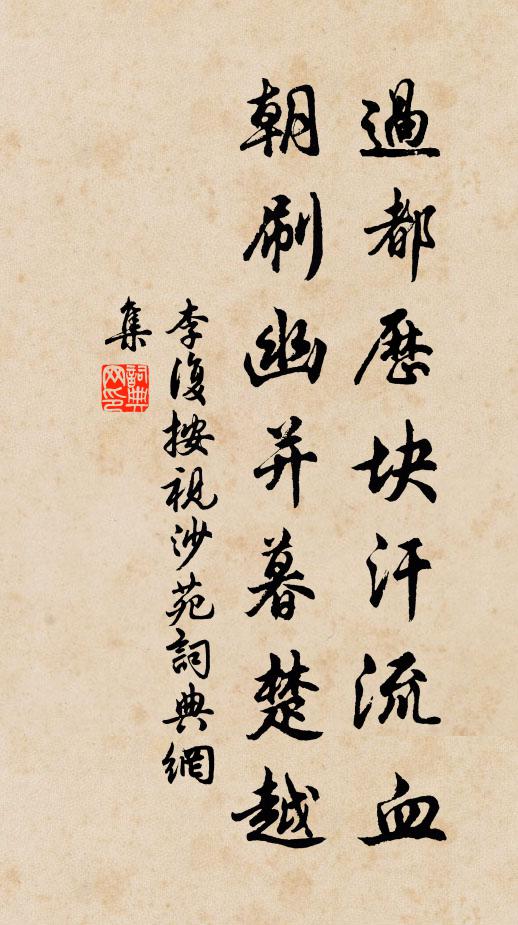 過都歷块汗流血
朝刷幽并暮楚越
李復按視沙苑詞典網
集
詞典
网印